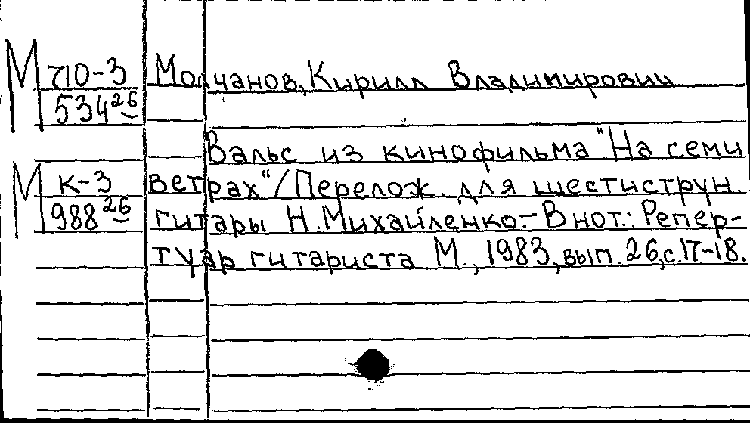 М 710-3 Молчанов, Кирилл Владимирович
534 26
Вальс из кинофильма "На семи
М К-3 ветрах"/Перелож. для шестиструн.
988 26 гитары Н. Михайленко.- В нот.: Репер-
туар гитариста М., 1983, вып. 26, с.17-18.